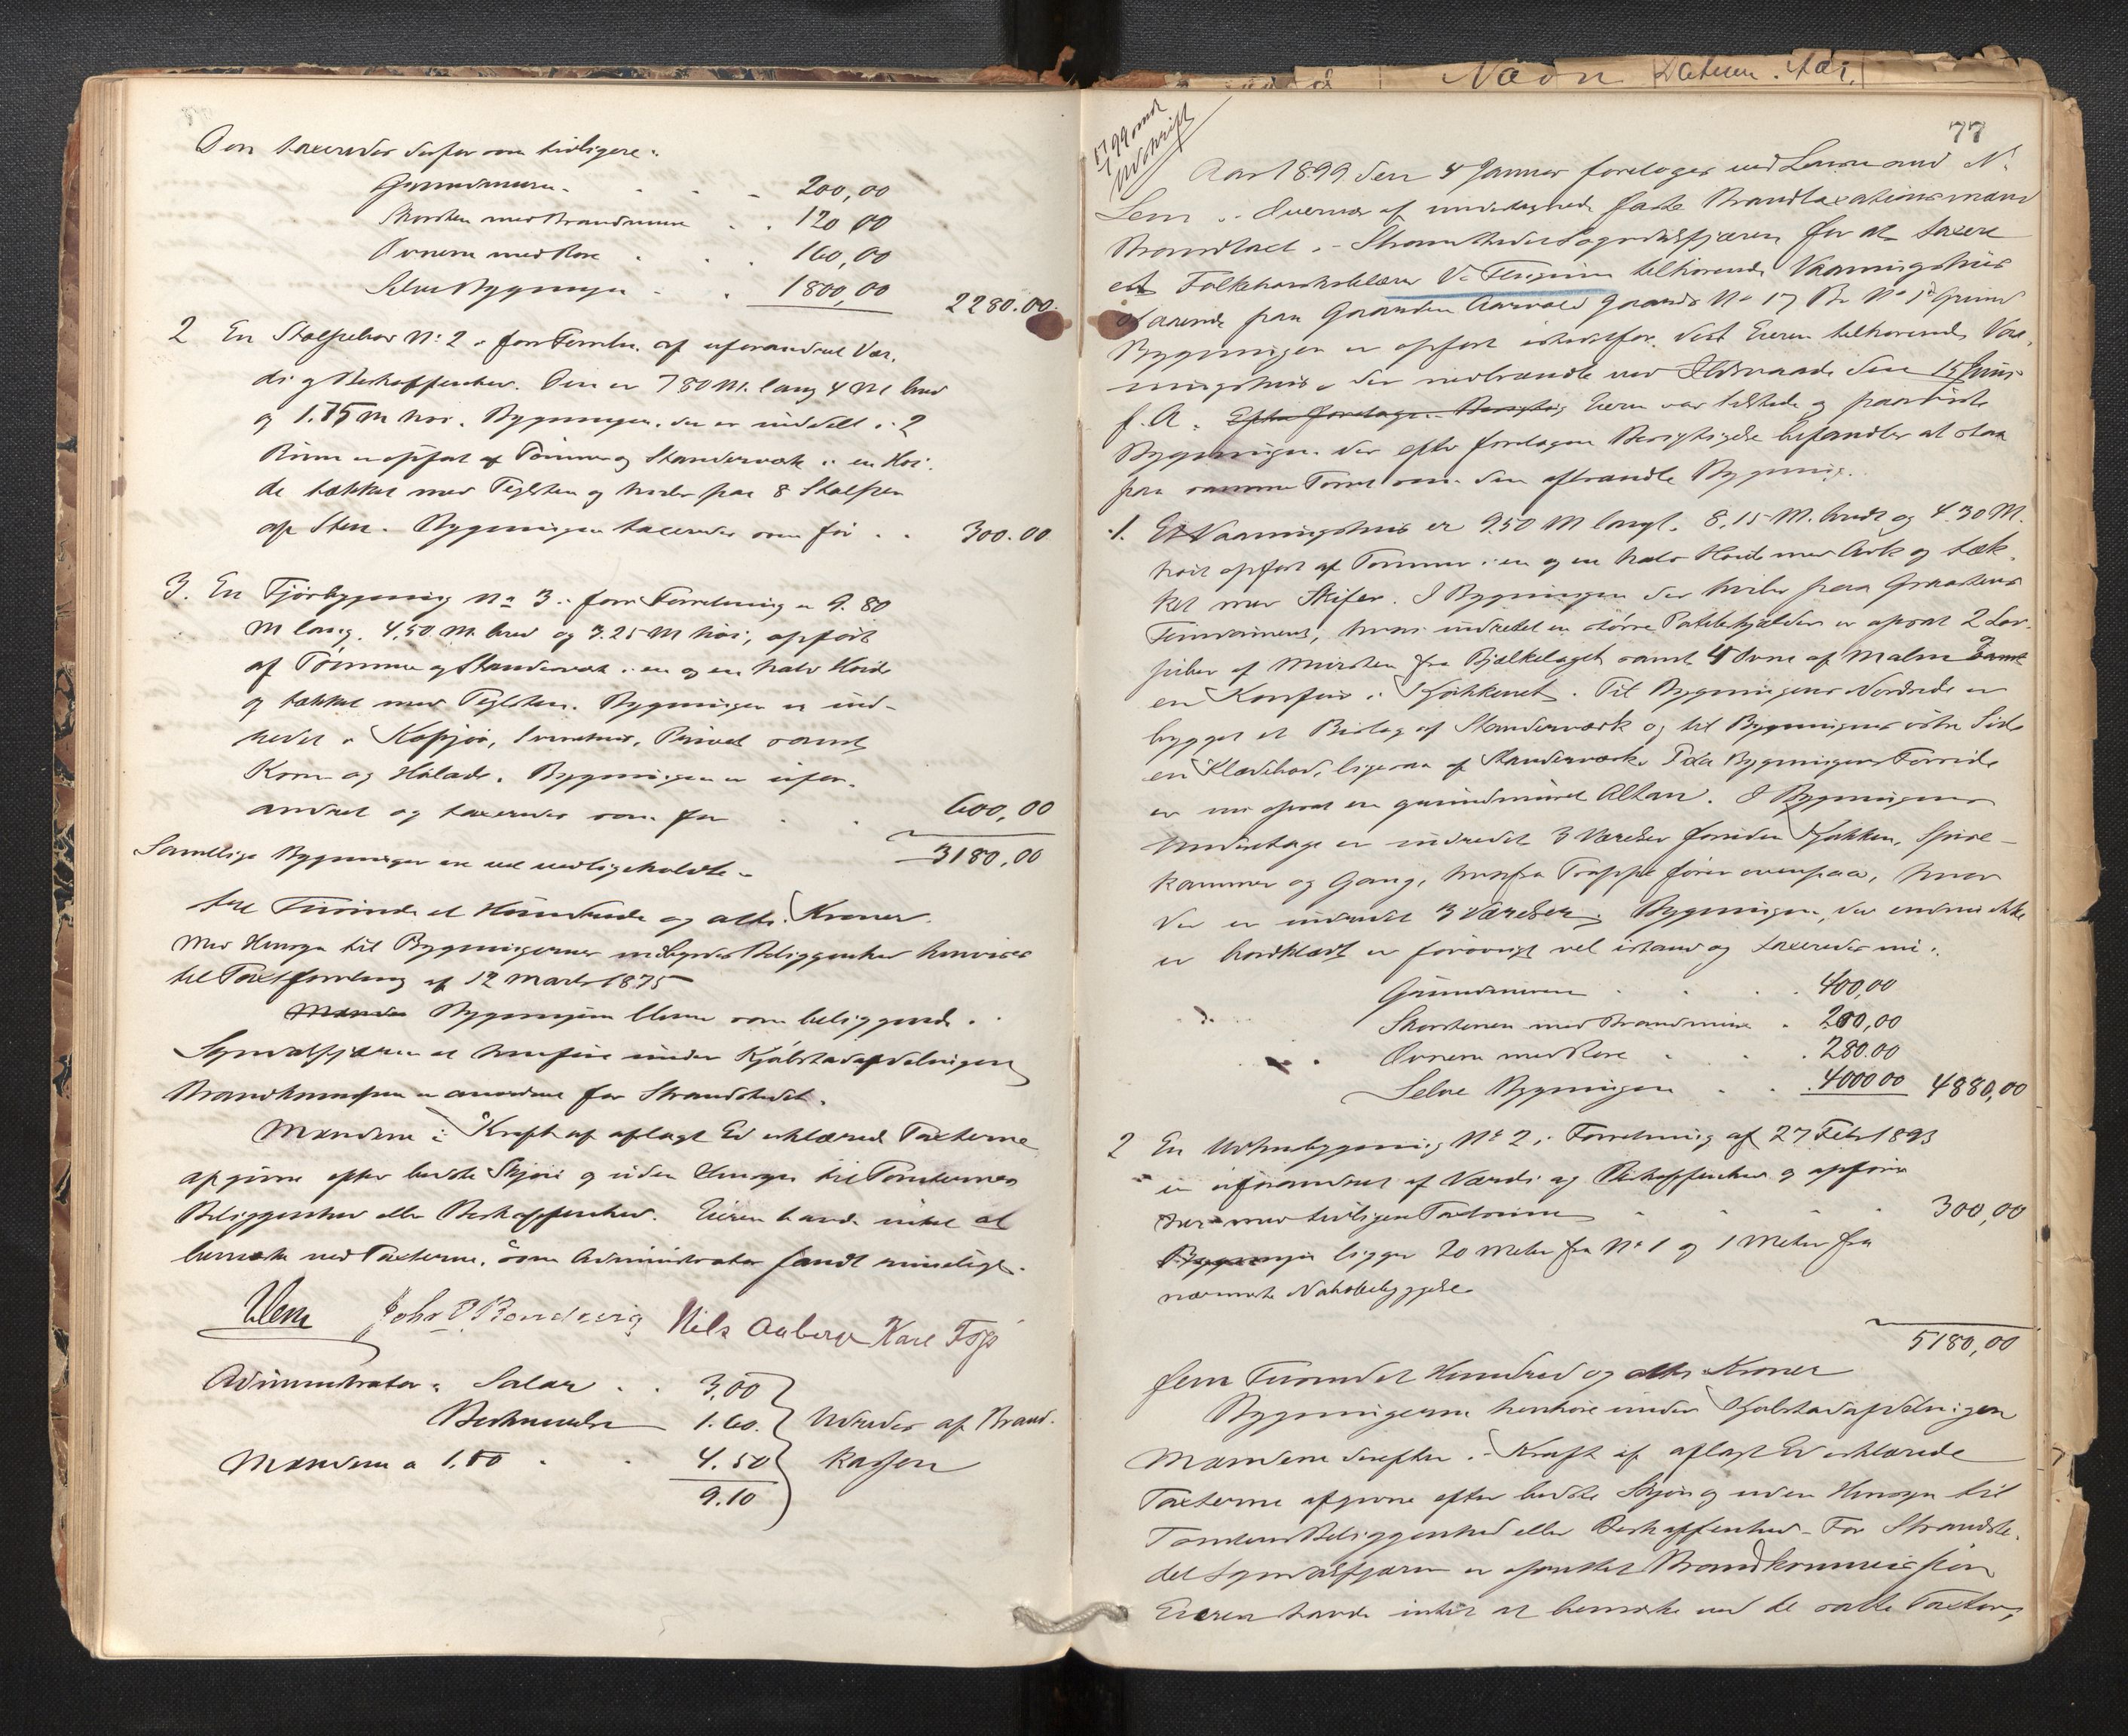 Den taxeredes derfor som tidligere:
Grundmuren 200,00
Skorsten med Brandmure 120,00
Ovnene med Rør 160,00
Selve Bygningen 1800,00 2280.00
2 En Stolpebod No 2 i forr. Forretn. af uforandret Vær-
di og Beskaffenhed. Den er 7 80 M. lang 4 M bred
og 1.75 M høi. Bygningen, der er inddelt i 2
Rum er opført af Tømmer og Standerværk i en Høi-
de tækket med Teglsten og hviler paa 8 Stolper
af Sten. Bygningen taxeredes som før 300.00
3. En Fjøsbygning No 3 i forr. Forretning er 9.80
M lang, 4,50 M bred og 3.25 M høi, opført
af Tømmer og Standerværk i en og en halv Høide
og tækket med Teglsten. Bygningen er ind-
redet i Kofjøs, Svinehus, Privet samt
Korn og Hølade. Bygningen er ufor-
andret og taxeredes som før 600,00
3180,00
Samtlige Bygninger ere vel vedligeholdte.
tre Tusinde et Hundrede og otti Kroner.
Med Hensyn til Bygningernes indbyrdes Beliggenhed henvises
til Taxtforretning af 12 Marts 1875
Mændene Bygningerne bliver som beliggende i
Sogndalsfjæren at henføre under Kjøbstadafdelingen
Brandkommission er anordnet for Strandstedet.
Mændene i Kraft af aflagt Ed erklærede Taxterne
afgivne efter bedste Skjøn og uden Hensyn til Tomternes
Beliggenhed eller Beskaffenhed. Eieren havde intet at
bemærke ved Taxterne, som Administrator fandt rimelige.
NLem John O Bondevig Nils Aaberge Karl Foss
Administrator i Salær 3,00
Beskrivelse 1.60. Udredes af Brand-
Mændene a 1.50 4.50 kassen
9.10
77
Udskrift
Aar 1899 den 4 Januar foretoges ved Lensmand N.
Lem i Overvær af undertegnede faste Brandtaxationsmænd
Brandtaxt i Strandstedet Sogndalsfjæren for at taxere
et Folkehøiskolelærer tilhørende Vaaningshus
staaende paa Gaarden Gaards No 17 Br. No 1 Grund
Bygningen er opført istedetfor det Eieren tilhørende Vaa-
ningshus, der nedbrændte ved Ildsvaade den 15 Juni
f. A. Efter foretagen Eieren var tilstede og paaviste
Bygningen, der efter foretagen Besigtigelse befandtes at staa
paa samme Tomt som den afbrændte Bygning.
1. Et Vaaningshus er 9.50 M langt, 8,15 M. bredt og 4.30 M.
høit opført af Tømmer i en og en halv Høide med Ark og tæk-
ket med Skifer. I Bygningen der hviler paa Graastens
Grundmur, hvori indrettet en større Potetkjælder er opsat 2 Sor-
piber af Mursten fra Bjælkelaget samt 4 Ovne af Malm samt
en Komfur i Kjøkkenet. Til Bygningens Nordside er
bygget et Bislag af Standerværk og til Bygningens østre Side
en Klædebod, ligesaa af Standerværk. Paa Bygningens Forside
er nu opsat en grundmuret Altan. I Bygningens
Underetage er indredet 3 Værelser foruden Kjøkken, Spise-
kammer og Gang, hvorfra Trappe fører ovenpaa, hvor
der er indredet 3 Værelser. Bygningen, der endnu ikke
er bordklædt er forøvrigt vel istand og taxeredes nu:
Grundmuren 400,00
Skorstenen med Brandmure 200,00
Ovnene med Rør 280.00
Selve Bygningen 4000 00 4880,00
2 En Udhusbygning No 2 i Forretning af 27 Febr 1893
er uforandret af Værdi og Beskaffenhed og opføres
her med tidligere Taxtsum 300,00
Bygningen ligger 20 Meter fra No 1 og 1 Meter fra
nærmeste Nabobebyggelse
5180,00
fem Tusinde et Hundred og otti Kroner
Bygningerne henhøre under Kjøbstadafdelingen
Mændene derefter i Kraft af aflagt Ed erklærede
Taxterne afgivne efter bedste Skjøn og uden Hensyn til
Tomtens Beliggenhed eller Beskaffenhed. For Strandste-
det Sogndalsfjæren er opnævnt Brandkommission
Eieren havde intet at bemærke ved de satte Taxter,